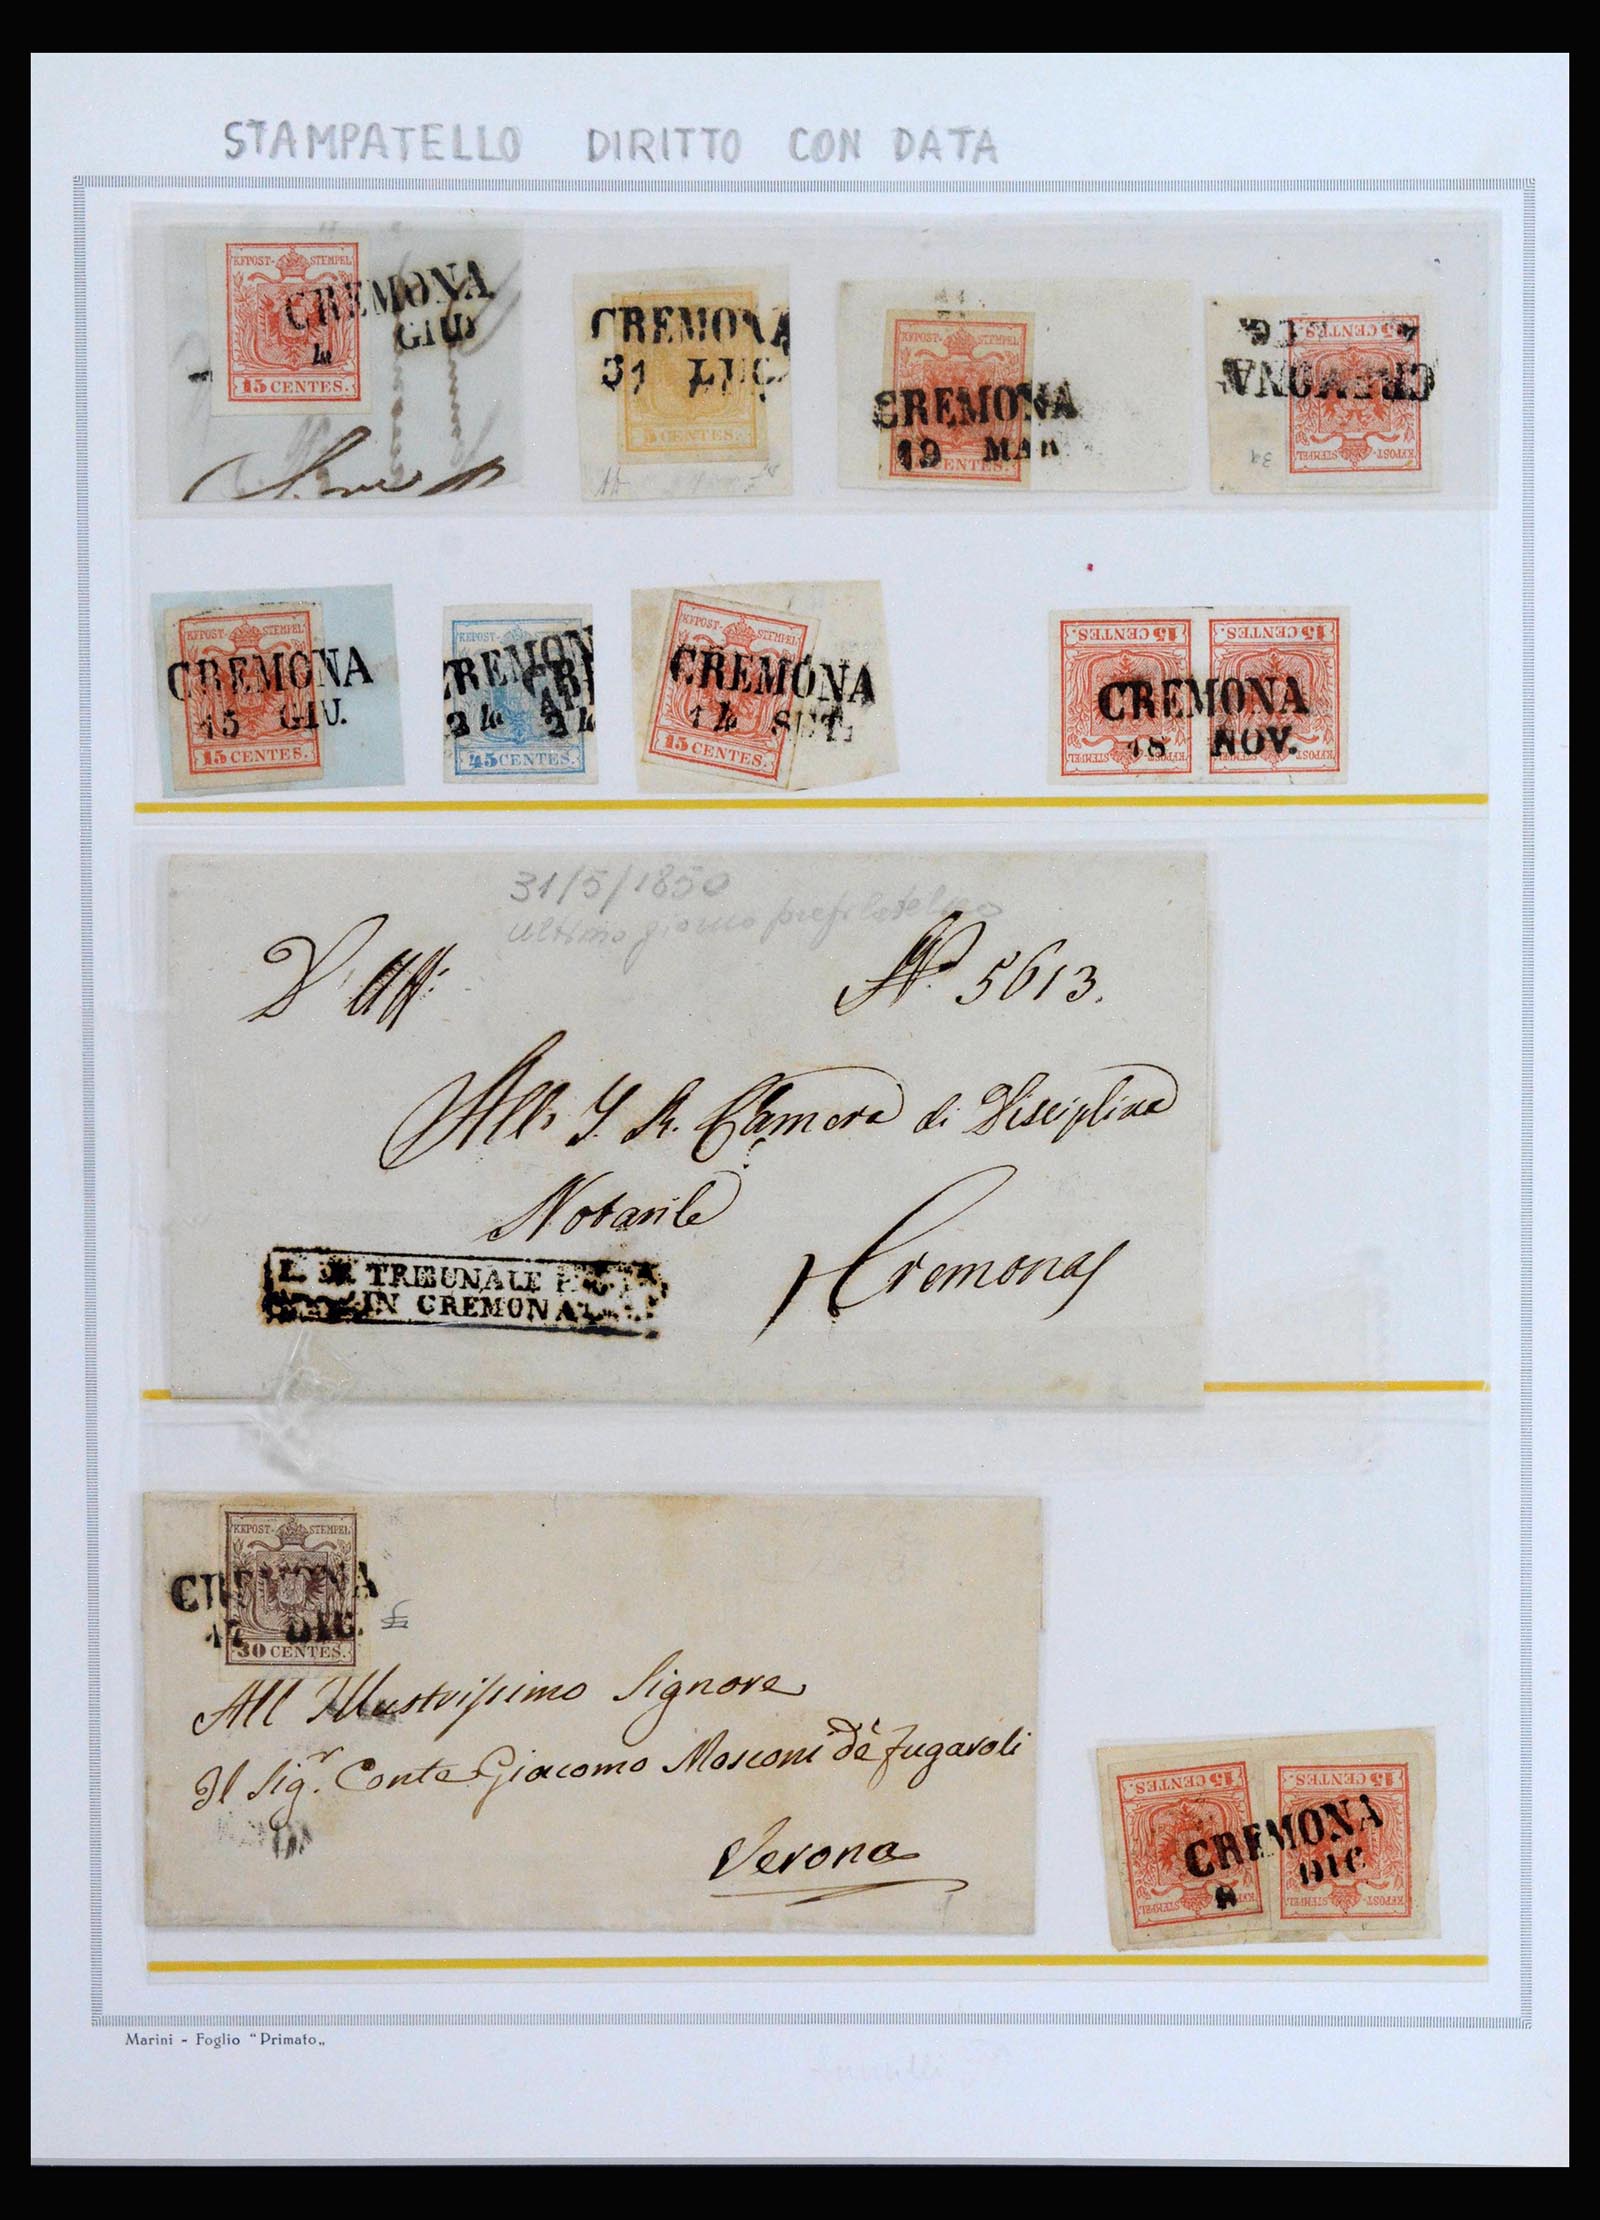 STAMPATELLO DIRITTO CON DATA
KFPOST- STEMPEL
CREMONA
4 GIU.
15 CENTES.
CREMONA
31 LUG.
5 CENTES.
KFPOST- STEMPEL
CREMONA
19 MAR
CENTES.
15 CENTES.
CREMONA
KFPOST- STEMPEL
KFPOST- STEMPEL
CREMONA
15 GIU.
15 CENTES.
KFPOST-
CREMON
CRE
24 APR
24
45 CENTES.
KFPOST- STEMPEL
CREMONA
14 SET.
15 CENTES.
15 CENTES. 15 CENTES.
CREMONA
18 NOV.
KFPOST- STEMPEL KFPOST- STEMPEL
31/5/1850
ultimo giorno prefilatelico
D'Uff:
N° 5613.
All' I. R. Camera di Disciplina
Notarile
Cremona
TRIBUNALE
IN CREMONA
KFPOST- STEMPEL
CREMONA
17 DIC.
30 CENTES.
All Illustrissimo Signore
Il Sigr. Conte Giacomo Mosconi dè Fugaroli
Verona
15 CENTES. 15 CENTES.
CREMONA
8 DIC
KFPOST- STEMPEL KFPOST- STEMPEL
Marini - Foglio "Primato„